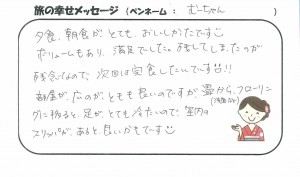 旅の幸せメッセージ（ペンネーム： むーちゃん ）
夕食、朝食が、とても、おいしかったです☺
ボリュームもあり、満足でした。残してしまったのが
残念なので、次回は完食したいです!!
部屋が、広のが、とても良いのですが 畳から、フローリン
グに移ると、足が、とても冷たいので、室内の
スリッパが、あると、良いかもです☺